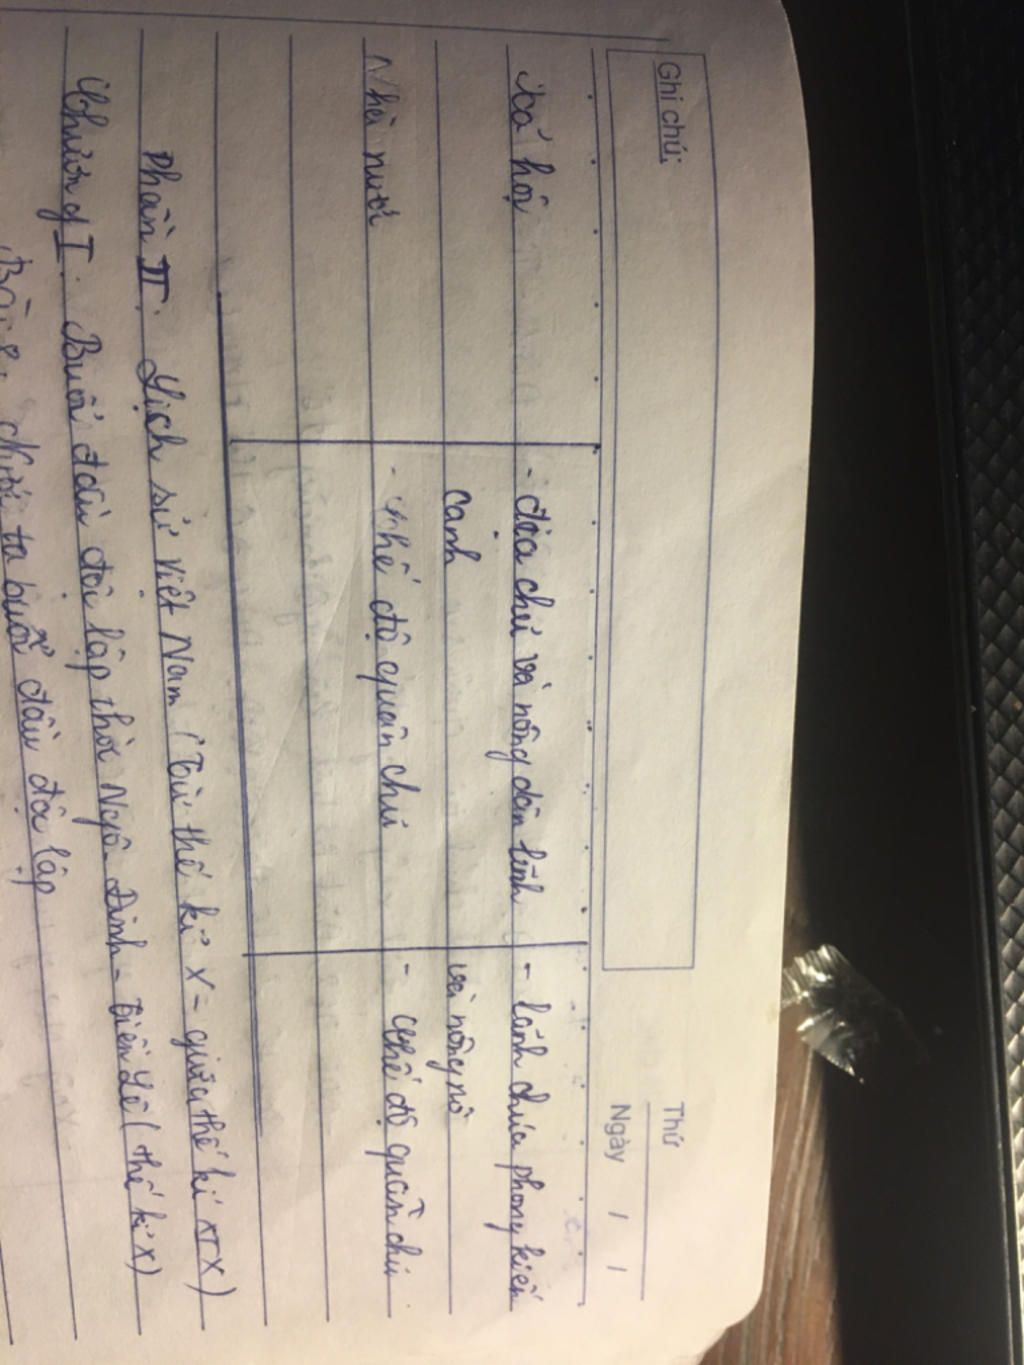 Ghi chú:
Thứ
Ngày / /
xã hội - địa chủ và nông dân lĩnh - lãnh chúa phong kiến
canh và nông nô
Nhà nước - chế độ quân chủ - chế độ quân chủ
Phần II: Lịch sử Việt Nam (Từ thế kỉ X - giữa thế kỉ XIX)
Chương I: Buổi đầu độc lập thời Ngô - Đinh - Tiền Lê (thế kỉ X)
Bài 8: Nước ta buổi đầu độc lập